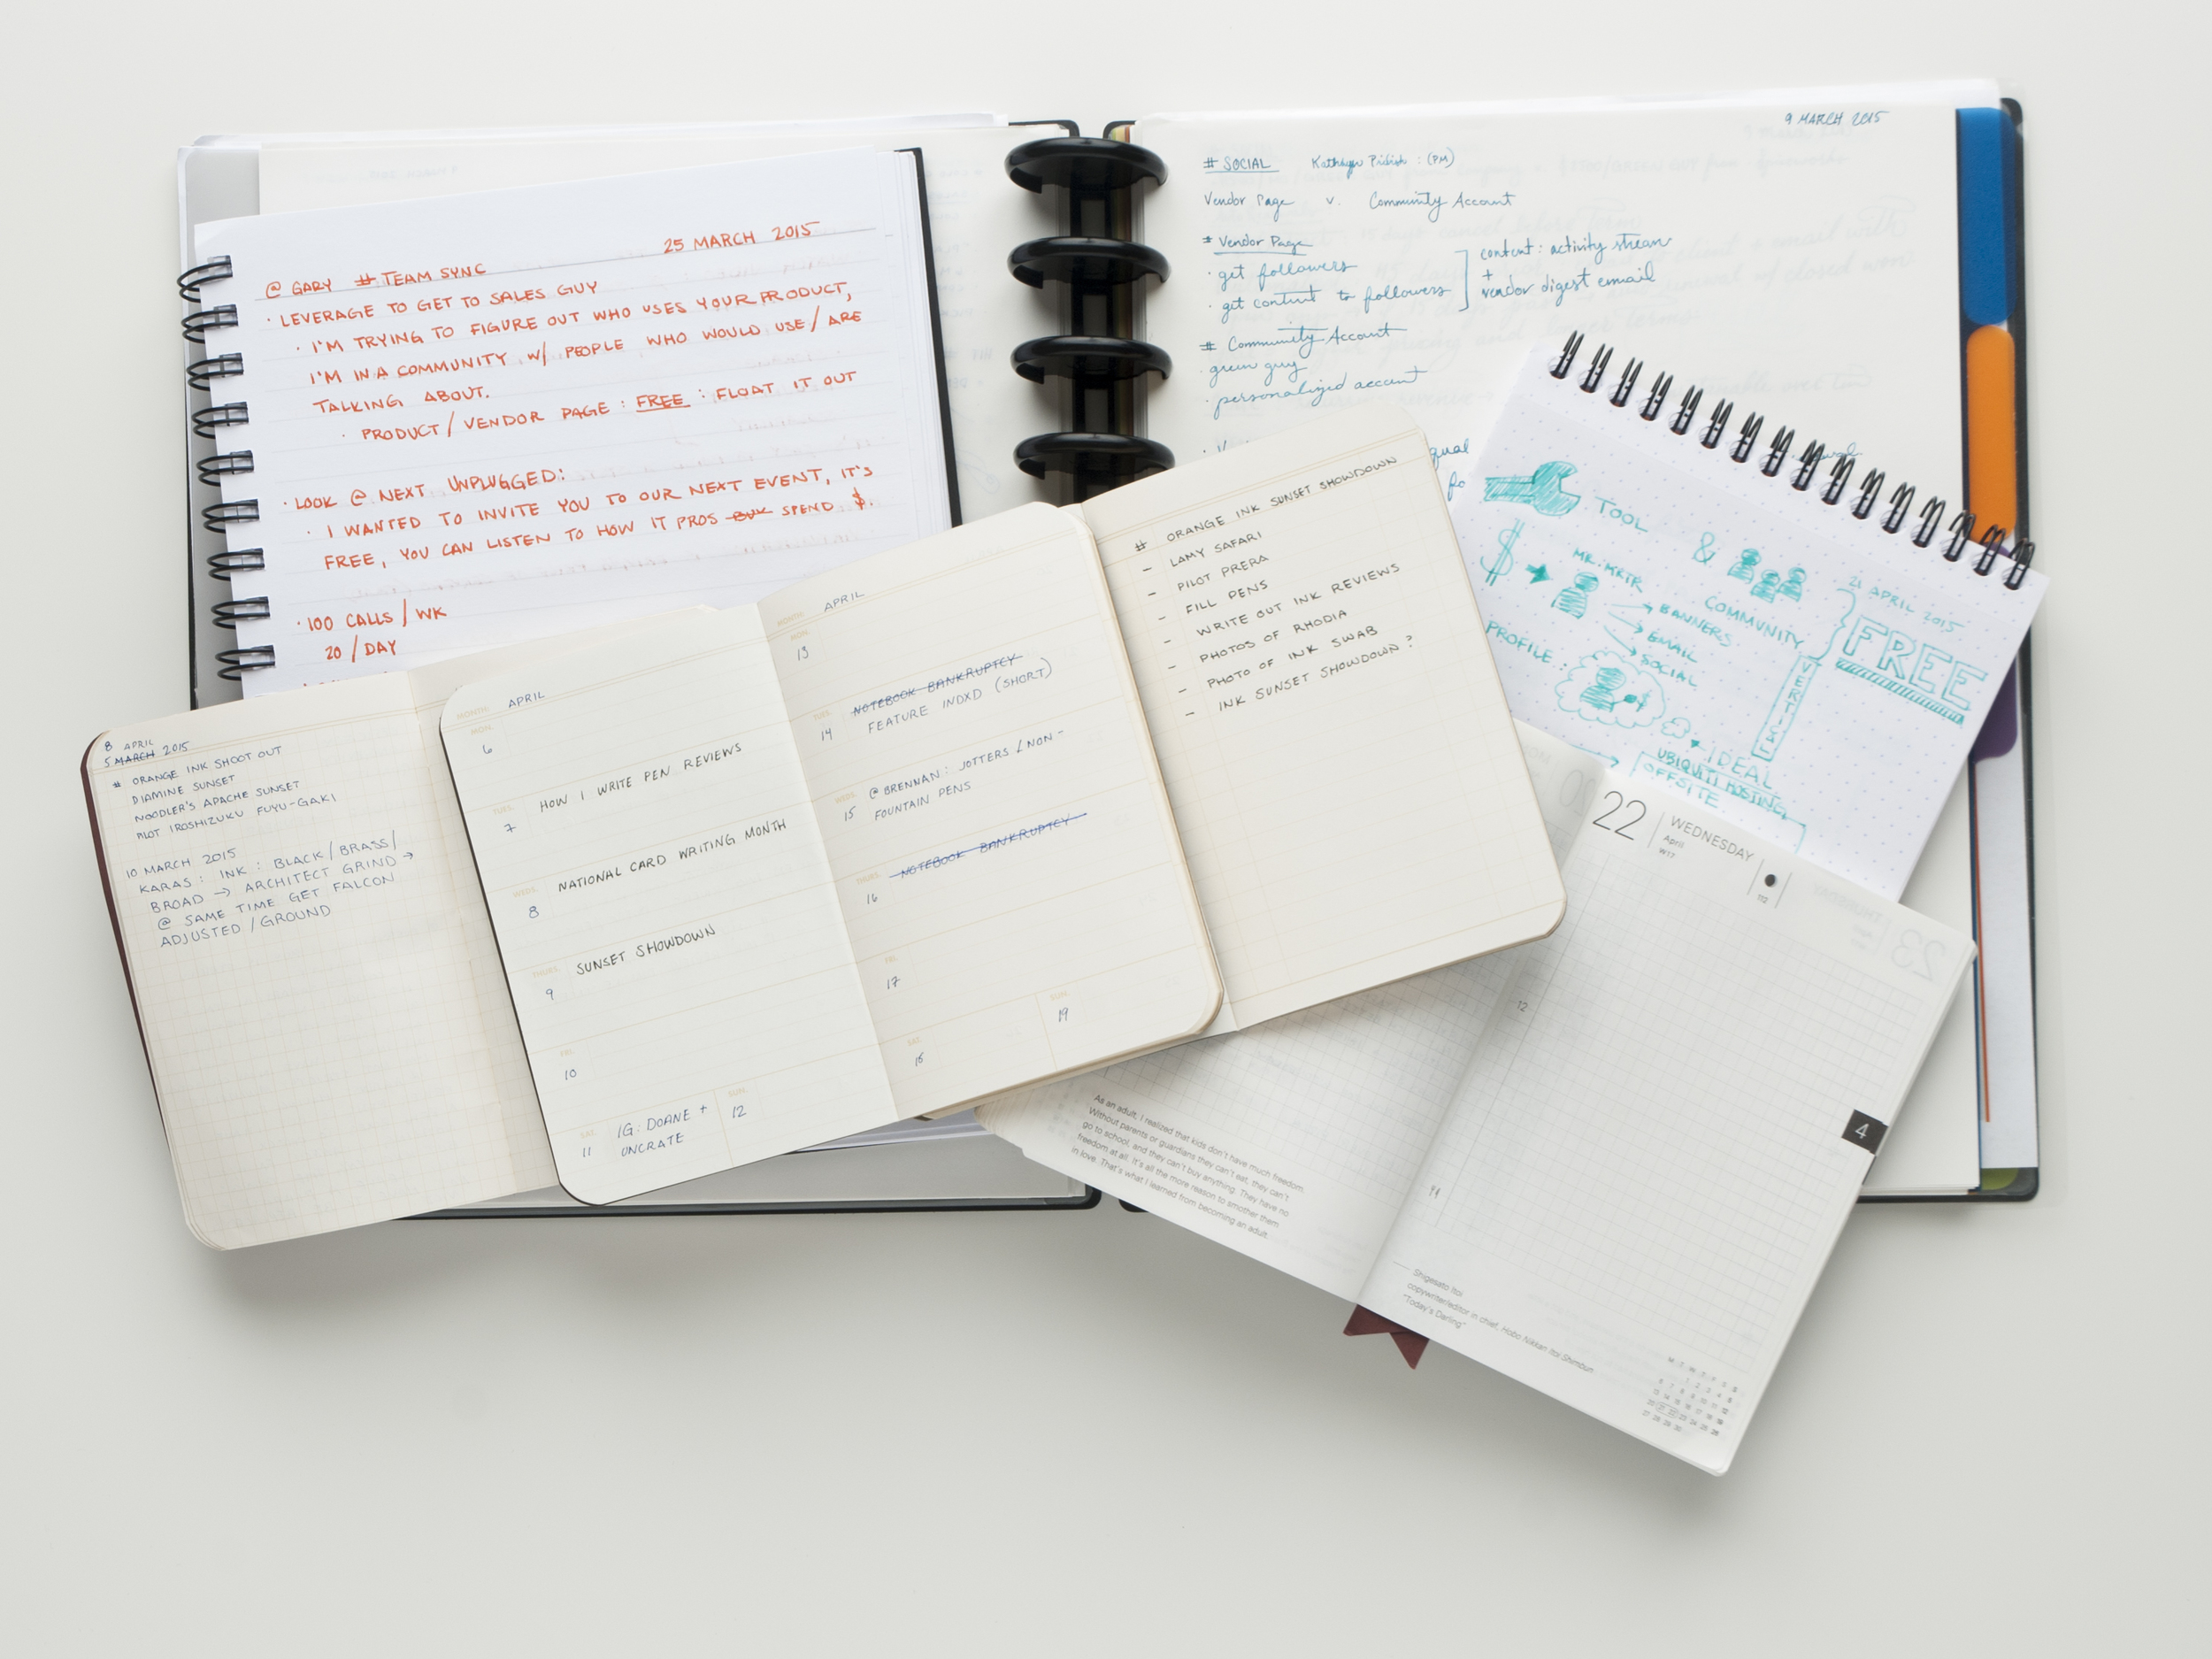 25 MARCH 2015
@ GARY # TEAM SYNC
· LEVERAGE TO GET TO SALES GUY
· I'M TRYING TO FIGURE OUT WHO USES YOUR PRODUCT,
I'M IN A COMMUNITY W/ PEOPLE WHO WOULD USE/ARE
TALKING ABOUT.
· PRODUCT/VENDOR PAGE : FREE : FLOAT IT OUT
· LOOK @ NEXT UNPLUGGED:
· I WANTED TO INVITE YOU TO OUR NEXT EVENT, IT'S
FREE, YOU CAN LISTEN TO HOW IT PROS SPEND $.
· 100 CALLS/WK
20/DAY
9 MARCH 2015
# SOCIAL (PM)
Vendor Page v. Community Account
# Vendor Page
· get followers
· get content to followers
content: activity stream
+
vendor digest email
# Community Account
· green guy
· personalized account
TOOL
& COMMUNITY
$
MR. MKTR
BANNERS
EMAIL
SOCIAL
PROFILE:
21 APRIL 2015
FREE
VERTICAL
IDEAL
UBIQUITI HOSTING,
OFFSITE
8 APRIL
5 MARCH 2015
# ORANGE INK SHOOT OUT
DIAMINE SUNSET
NOODLER'S APACHE SUNSET
PILOT IROSHIZUKU FUYU-GAKI
10 MARCH 2015
KARAS: INK: BLACK/BRASS/
BROAD → ARCHITECT GRIND →
@ SAME TIME GET FALCON
ADJUSTED/GROUND
MONTH: APRIL
MON.
6
TUES.
7 HOW I WRITE PEN REVIEWS
WEDS.
8 NATIONAL CARD WRITING MONTH
THURS.
9 SUNSET SHOWDOWN
FRI.
10
SAT.
11 IG: DOANE +
UNCRATE
SUN.
12
MONTH: APRIL
MON.
13
TUES.
14 NOTEBOOK BANKRUPTCY
FEATURE INDXD (SHORT)
WEDS.
15 @ BRENNAN: JOTTERS / NON-
FOUNTAIN PENS
THURS.
16 NOTEBOOK BANKRUPTCY
FRI.
17
SAT.
18
SUN.
19
# ORANGE INK SUNSET SHOWDOWN
- LAMY SAFARI
- PILOT PRERA
- FILL PENS
- WRITE OUT INK REVIEWS
- PHOTOS OF RHODIA
- PHOTO OF INK SWAB
- INK SUNSET SHOWDOWN?
As an adult, I realized that kids don't have much freedom.
Without parents or guardians they can't eat, they can't
go to school, and they can't buy anything. They have no
freedom at all. It's all the more reason to smother them
in love. That's what I learned from becoming an adult.
22 WEDNESDAY
April
W17
112
12
4
Shigesato Itoi
copywriter/editor in chief, Hobo Nikkan Itoi Shimbun
"Today's Darling"